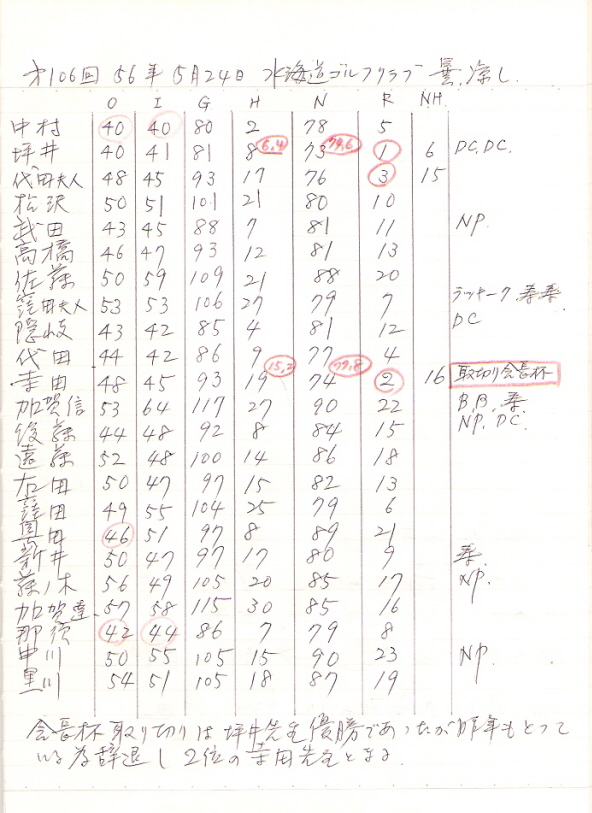 才106回 56年5月24日 水海道ゴルフクラブ 曇、凉し
O I G H N R NH
中村 40 40 80 2 78 5
坪井 40 41 81 8 6,4 73 74,6 1 6 DC.DC.
代田夫人 48 45 93 17 76 3 15
松沢 50 51 101 21 80 10
武田 43 45 88 7 81 11 NP.
高橋 46 47 93 12 81 13
佐藤 50 59 109 21 88 20
窪田夫人 53 53 106 27 79 7 ラッキーク.寿寿
隠岐 43 42 85 4 81 12 DC
代田 44 42 86 9 77 4
幸田 48 45 93 19 15,2 74 77,8 2 16 取切り会長杯
加賀信 53 64 117 27 90 22 B,B,寿
後藤 44 48 92 8 84 15 NP,DC.
遠藤 52 48 100 14 86 18
右田 50 47 97 15 82 13
窪田 49 55 104 25 79 6
46 51 97 8 89 21
新井 50 47 97 17 80 9 寿
藤ノ木 56 49 105 20 85 17 NP.
加賀達 57 58 115 30 85 16
那須 42 44 86 7 79 8
中川 50 55 105 15 90 23 NP.
里川 54 51 105 18 87 19
会長杯取り切りは坪井先生優勝であったが昨年もとって
いる為辞退し2位の幸田先生とまる